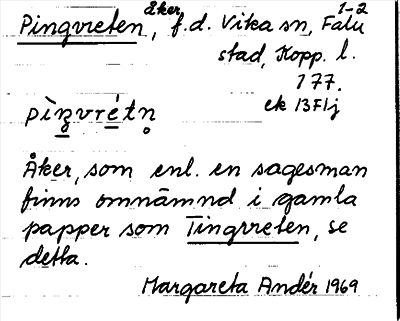 Pingvreten, åker, f.d. Vika sn, Falu 1-2
stad, Kopp. l.
177.
ek 13F1j
pìŋvrétn̥
Åker, som enl. en sagesman
finns omnämnd i gamla
papper som Tingvreten, se
detta.
Margareta Andér 1969